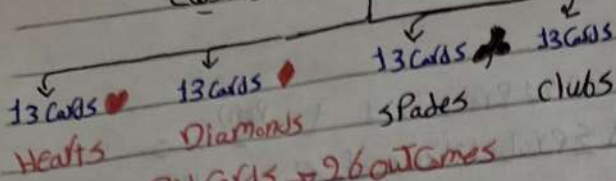 13 Cards 13 Cards 13 Cards 13 Cards
Hearts Diamonds Spades Clubs
Cards = 26 outcomes